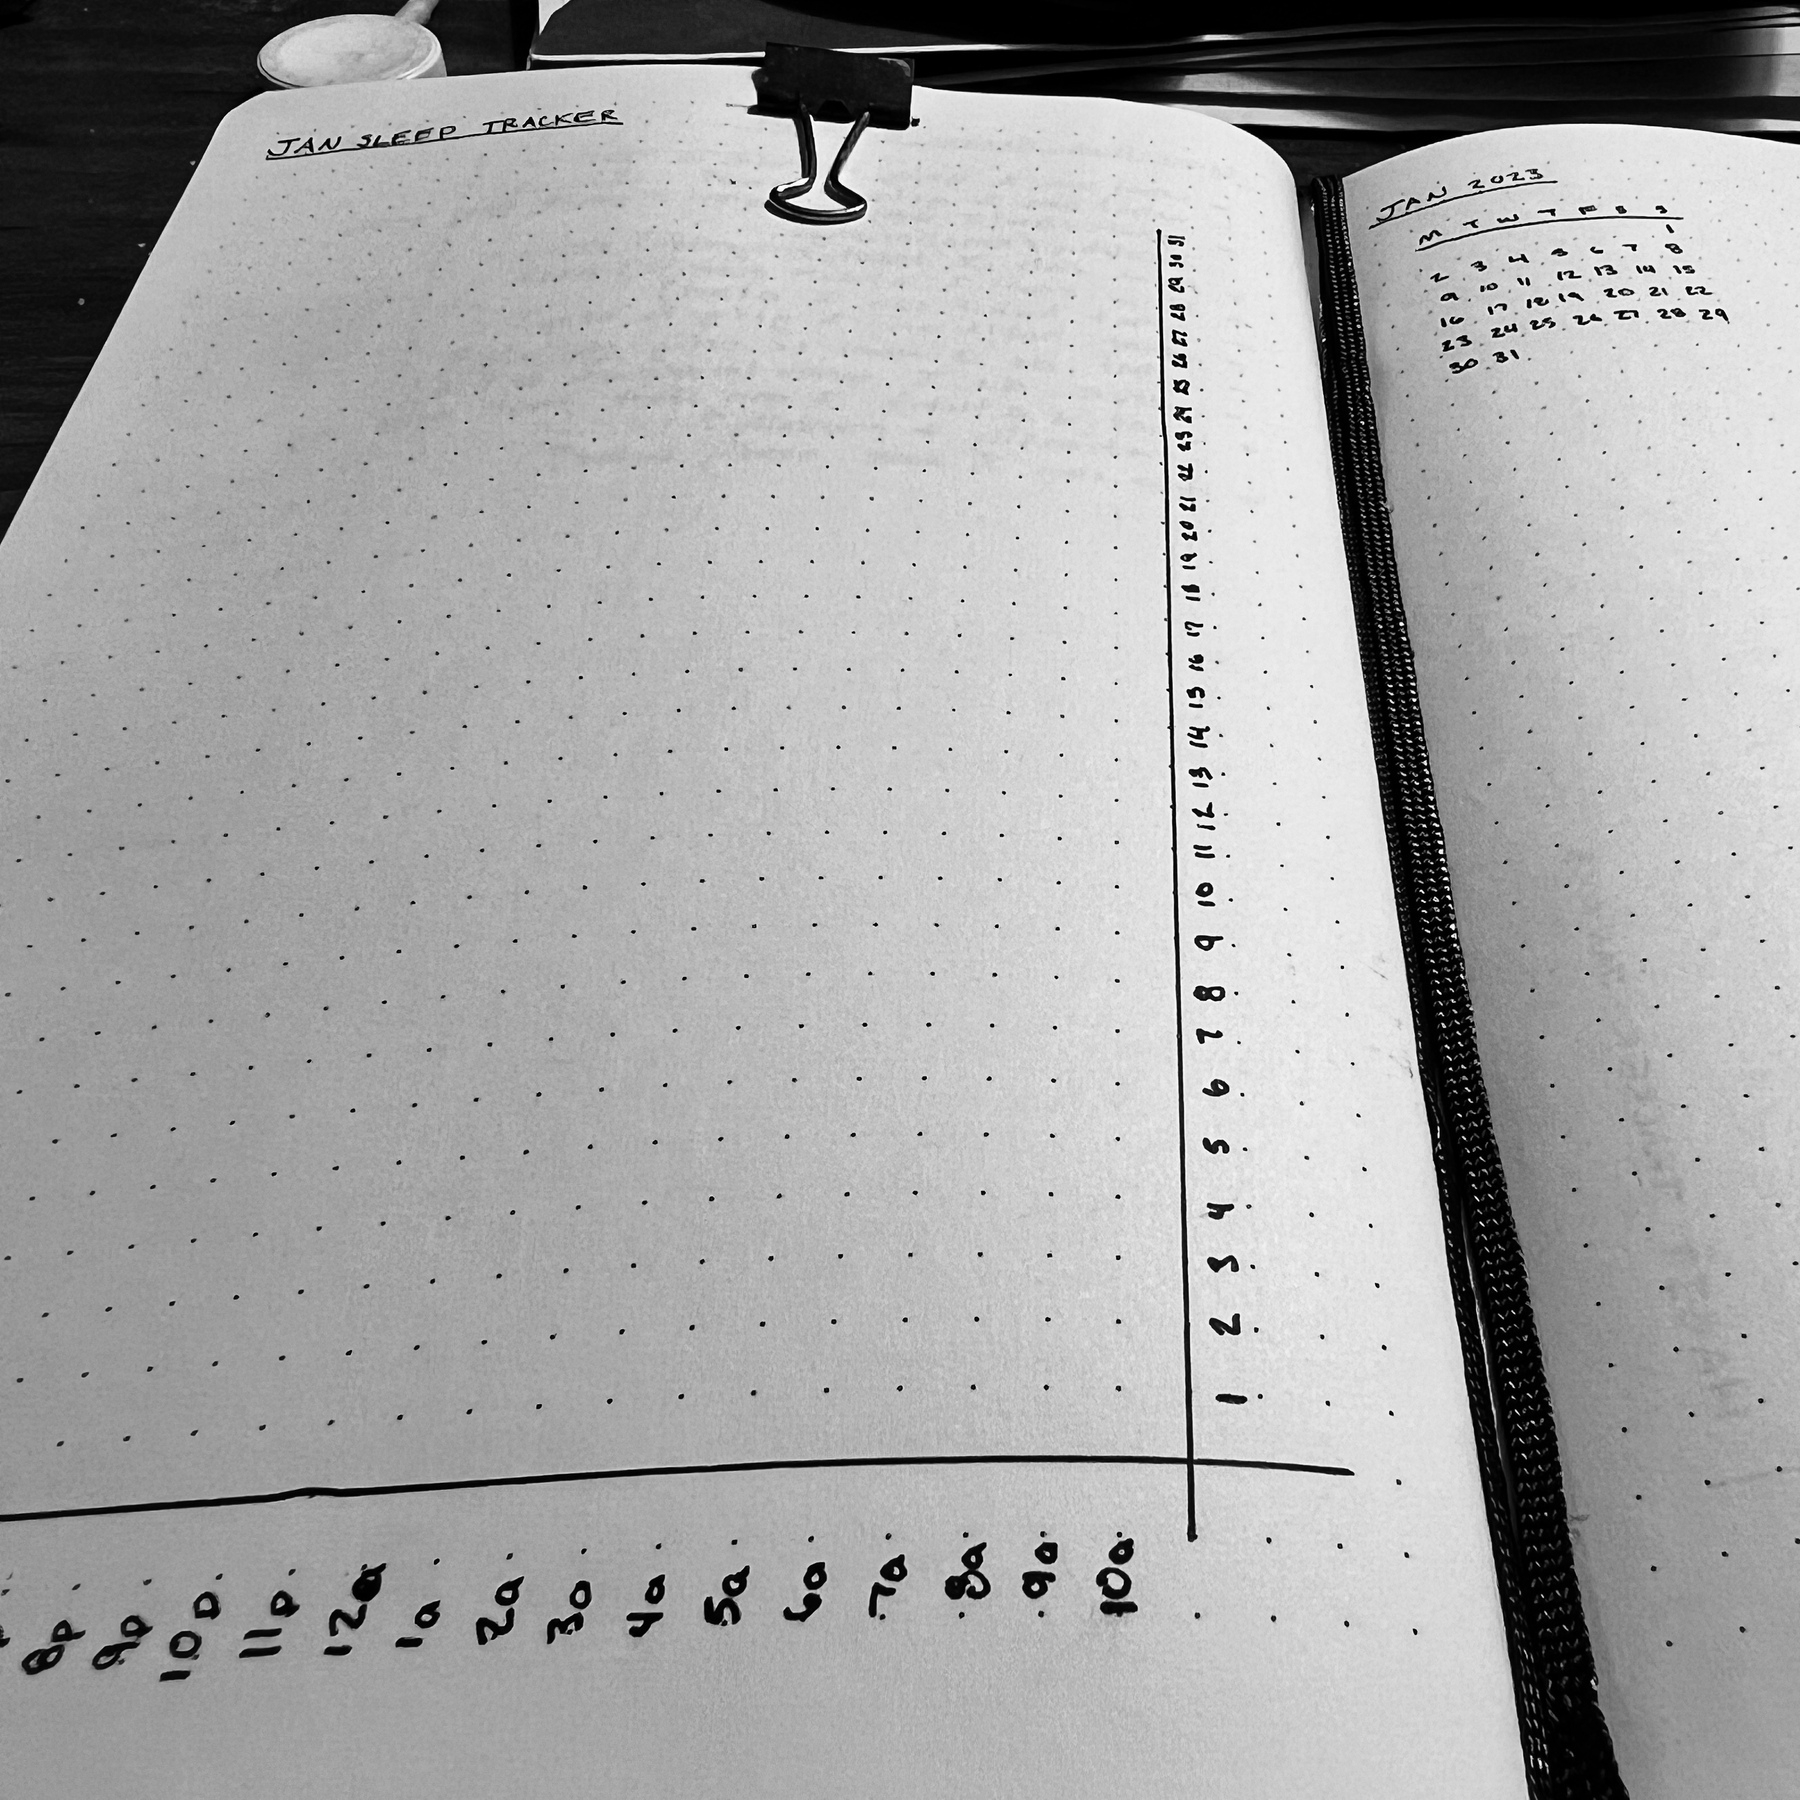 JAN SLEEP TRACKER
31
30
29
28
27
26
25
24
23
22
21
20
19
18
17
16
15
14
13
12
11
10
9
8
7
6
5
4
3
2
1
8p 9p 10p 11p 12a 1a 2a 3a 4a 5a 6a 7a 8a 9a 10a
JAN 2023
M T W T F S S
1
2 3 4 5 6 7 8
9 10 11 12 13 14 15
16 17 18 19 20 21 22
23 24 25 26 27 28 29
30 31